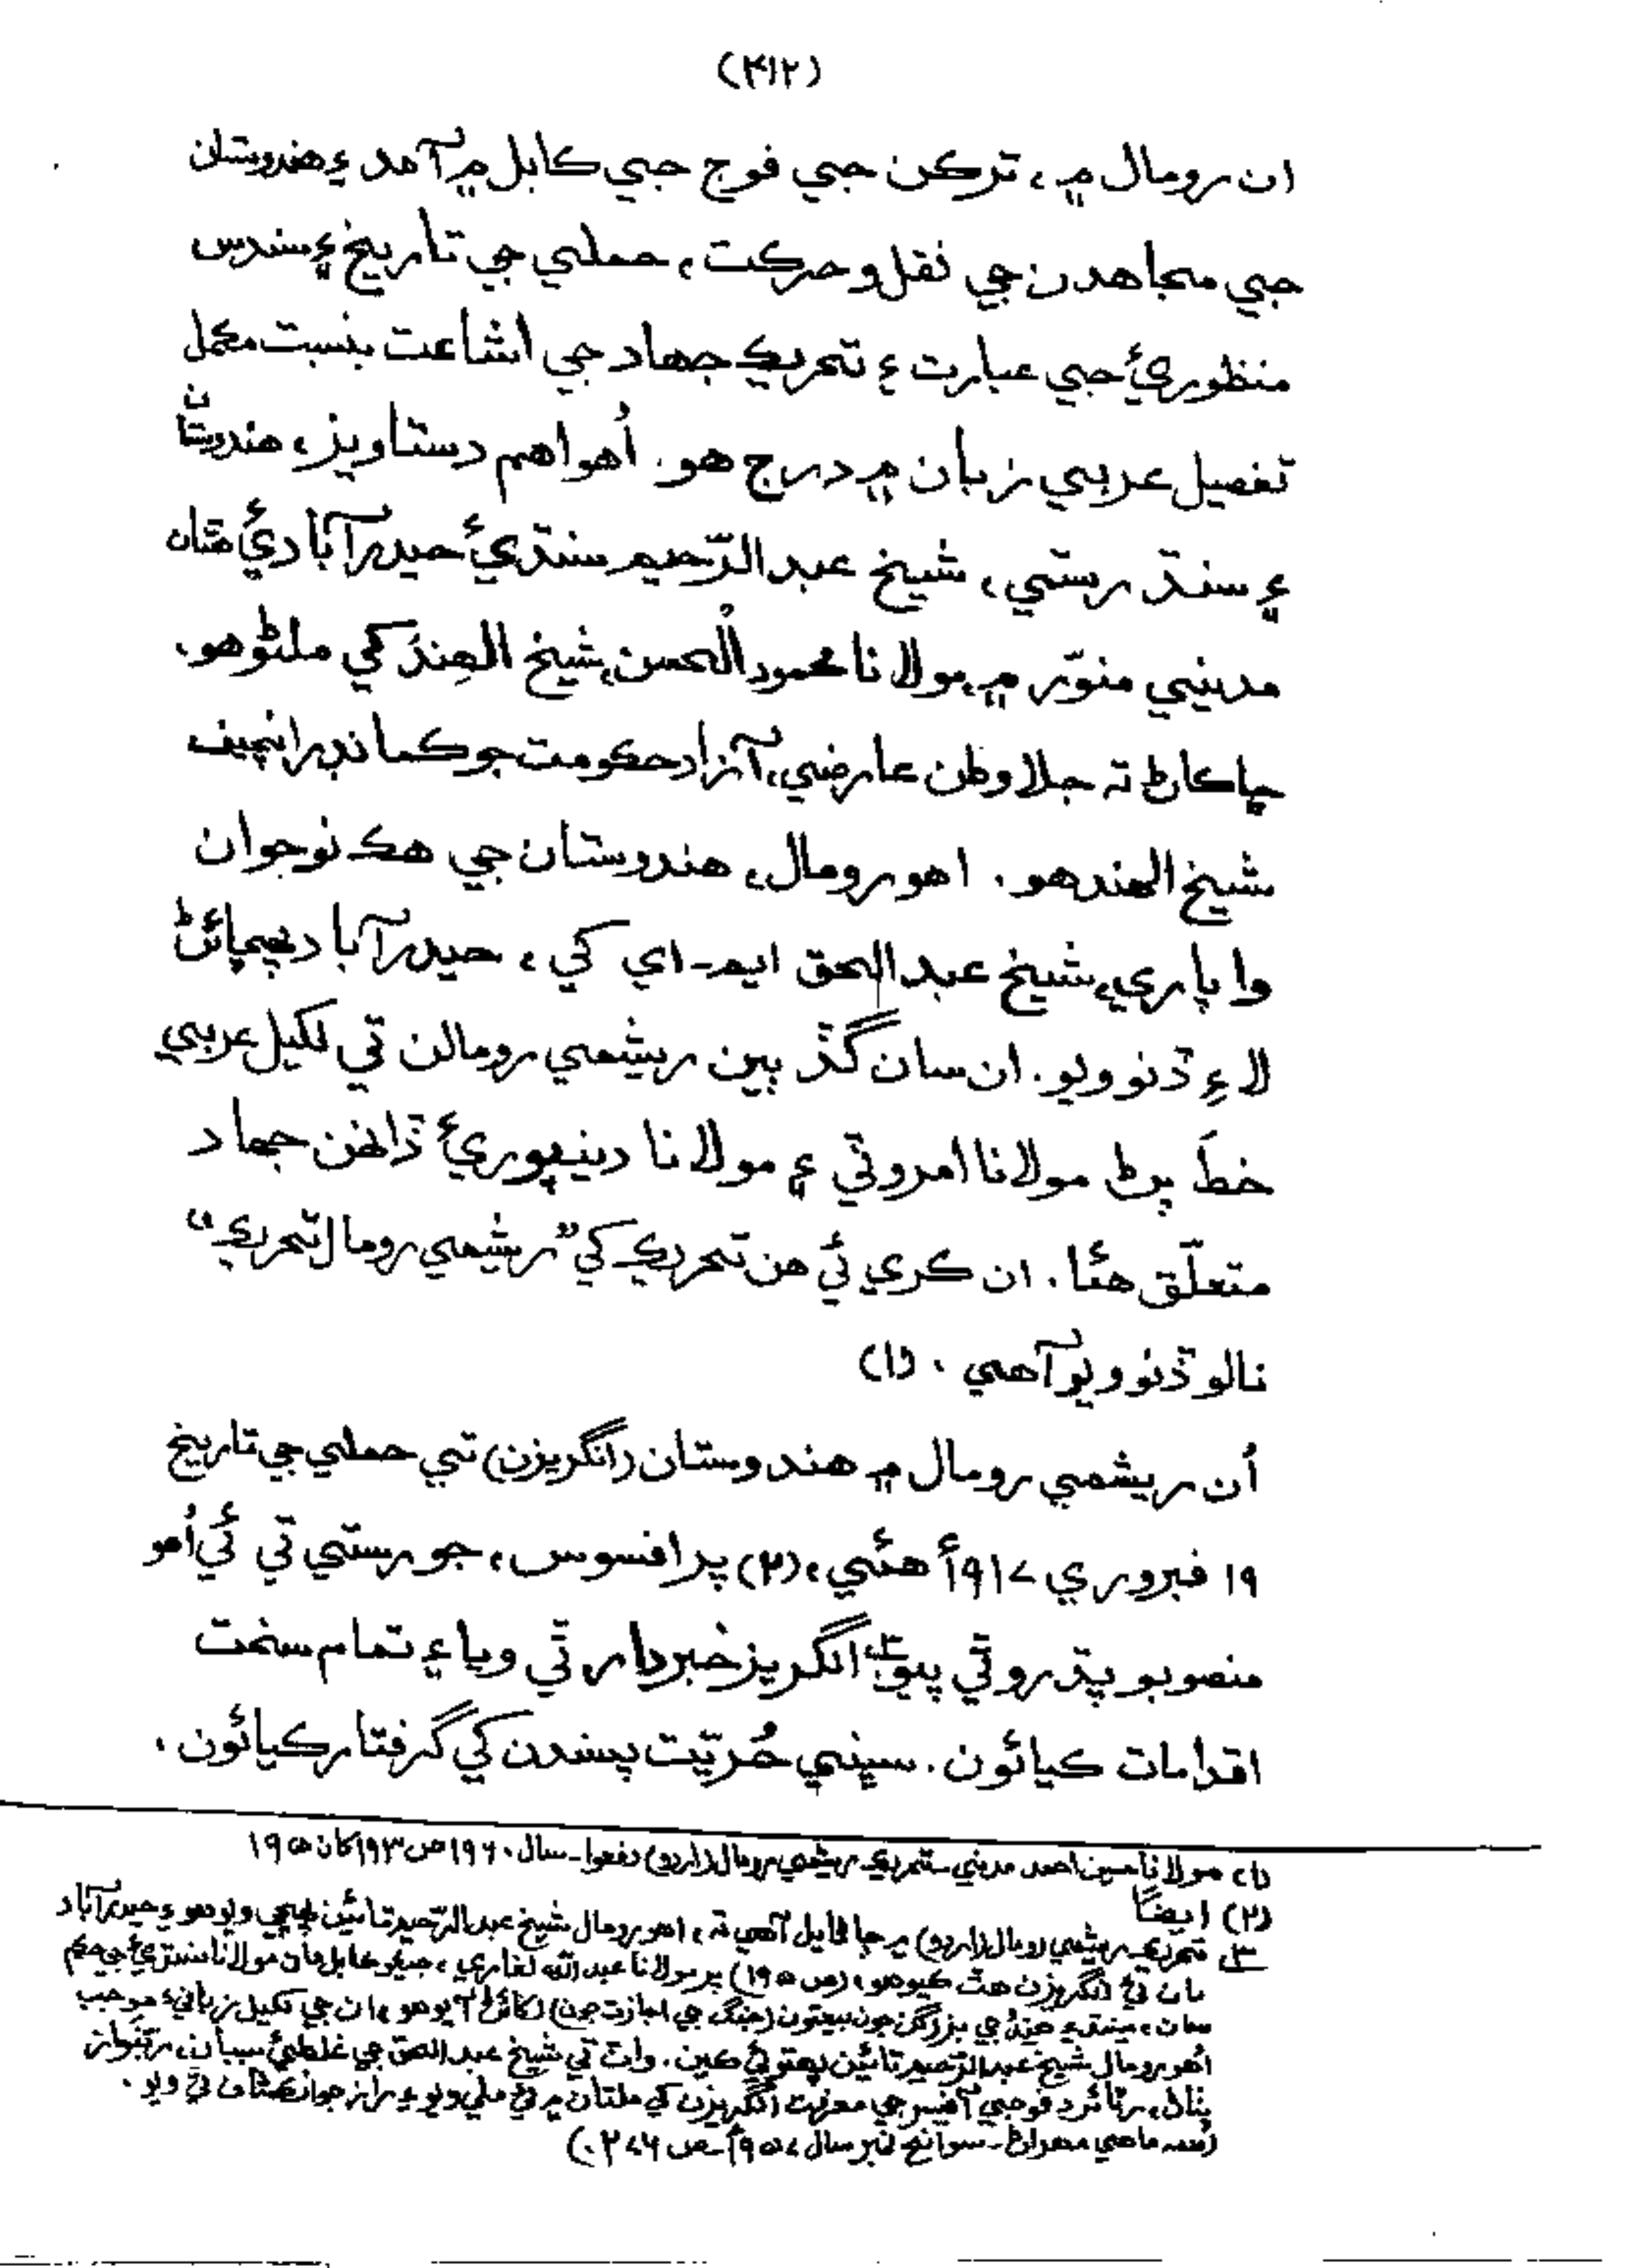 (٣١٢)
ان رومال ۾، ترڪن جي فوج جي ڪابل ۾ آمد ۽ هندوستان
جي مجاهدن جي نقل و حرڪت، حملي جي تاريخ ۽ سندس
منظوريءَ جي عبارت ۽ تحريڪ جهاد جي اشاعت بنسبت مڪمل
تفصيل عربي زبان ۾ درج هو. اُهو اهم دستاويز، هندوستان
۽ سنڌ رستي، شيخ عبدالرّحيم سنڌيءَ حيدرآباديءَ هٿان
مديني منوّر ۾ مولانا محمود الْحسن، شيخ الهِندَ کي ملڻو هو.
ڇاڪاڻ ته جلاوطن عارضي، آزاد حڪومت جو ڪمانڊر انچيف
شيخ الهند هو. اهو رومال، هندوستان جي هڪ نوجوان
واپاري، شيخ عبدالحق ايم-اي کي، حيدرآباد پهچائڻ
لاءِ ڏنو ويو. ان سان گڏ ٻين ريشمي رومالن تي لکيل عربي
خطَ پڻ مولانا امروٽي ۽ مولانا دينپوريءَ ڏانهن جهاد
متعلّق هئا. ان ڪري ئي هن تحريڪ کي ”ريشمي رومال تحريڪ“
نالو ڏنو ويو آهي. (١)
اُن ريشمي رومال ۾ هندوستان (انگريزن) تي حملي جي تاريخ
١٩ فيبروري ١٩١٧ع هئي، (٢) پر افسوس، جو رستي تي ئي اُهو
منصوبو پڌرو ٿي پيو انگريز خبردار ٿي ويا ۽ تمام سخت
اقدامات ڪيائون. سڀني حُريّت پسندن کي گرفتار ڪيائون.
(١) مولانا حسين احمد مدني - تحريڪ ريشمي رومال (اردو) دفعو ١ - سال ١٩٦٠ ص ١٩٣ کان ١٩٥
(٢) ايضاً
٣ تحريڪ ريشمي رومال (اردو) ۾ ڄاڻايل آهي ته، اهو رومال شيخ عبدالرّحيم تائين پهچي ويو هو ۽ حيدرآباد
مان ئي انگريزن هٿ ڪيو هو، (ص ١٩٥) پر مولانا عبدالله لغاري، جيڪو ڪابل مان مولانا سنڌيءَ جي حڪم
سان، سنڌ ۽ هند جي بزرگن جون بيعتون (جنگ جي اجازت جون) آيو هو، ان جي لکيل زبانيءَ موجب
اُهو رومال شيخ عبدالرّحيم تائين پهتو ئي ڪين. واٽ تي شيخ عبدالحق جي غلطيءَ سببان،
رٽائرڊ فوجي آفيسر جي معرفت انگريزن کي ملتان ۾ ئي ملي ويو ۽ راز جو انڪشاف ٿي ويو.
(سه ماهي مهراڻ - سوانح نمبر سال ١٩٥٧ع - ص ٢٧٦.)